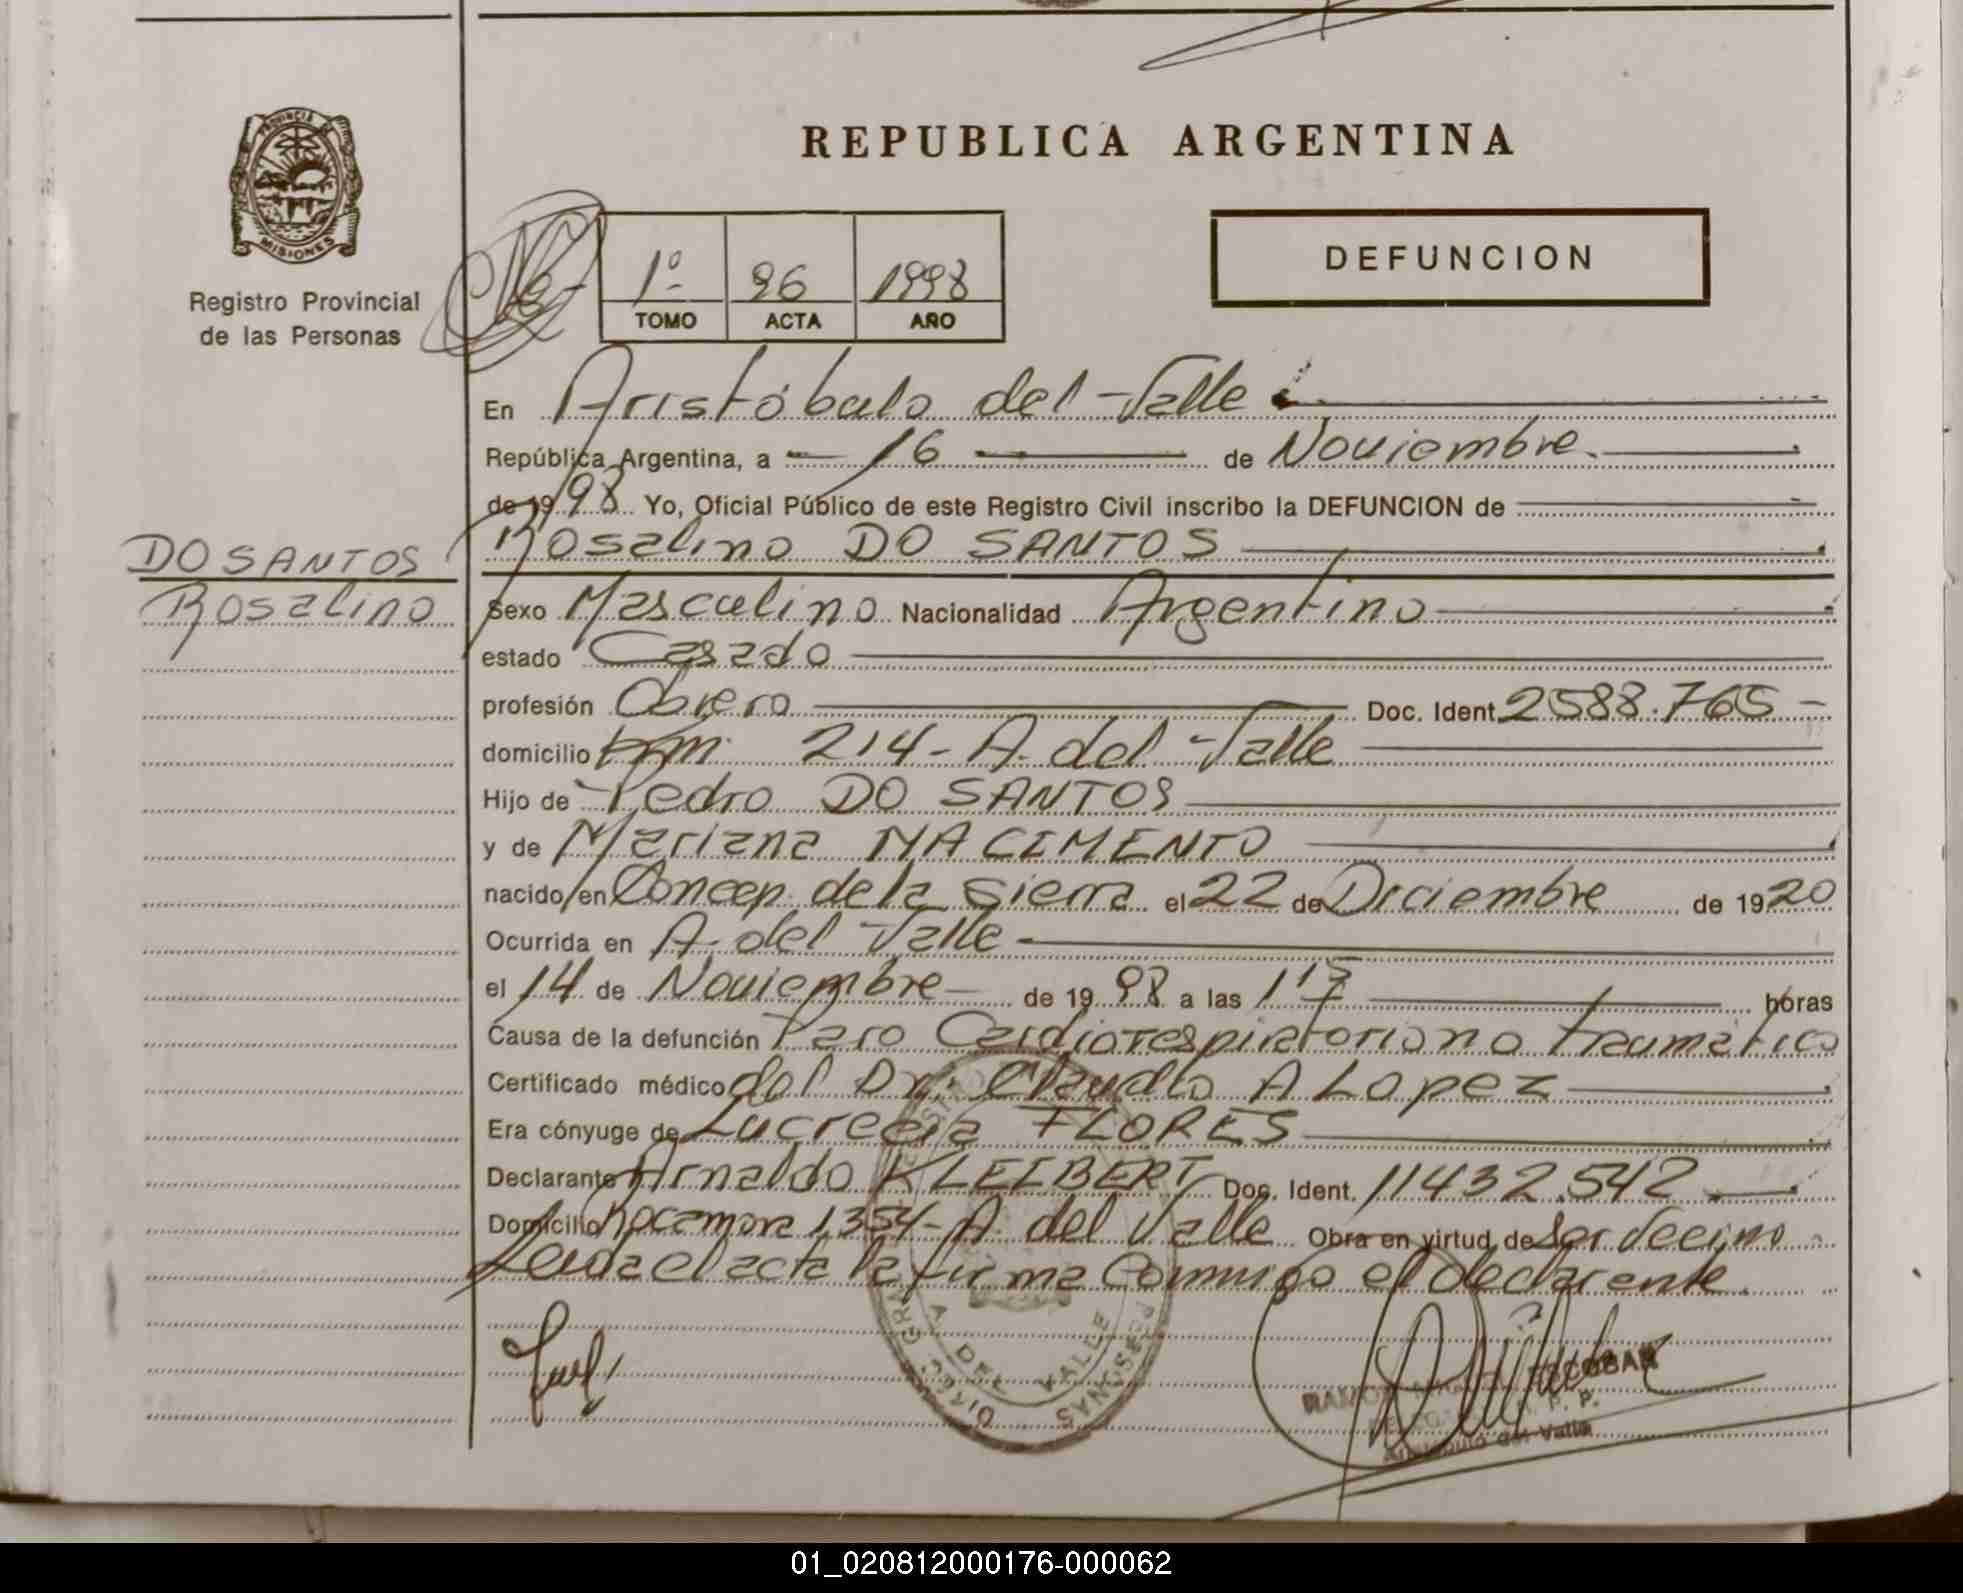 REPUBLICA ARGENTINA
PROVINCIA DE
MISIONES
Registro Provincial
de las Personas
1º 96 1998
TOMO ACTA AÑO
DEFUNCION
En Aristóbulo del Valle
República Argentina, a 16 de Noviembre
de 19 98 Yo, Oficial Público de este Registro Civil inscribo la DEFUNCION de
Rosalino DO SANTOS
DO SANTOS
Rosalino
Sexo Masculino Nacionalidad Argentino
estado Casado
profesión Obrero Doc. Ident. 2588.765 -
domicilio Km. 214 - A. del Valle
Hijo de Pedro DO SANTOS
y de Mariana NACIMENTO
nacido en Concep. de la Sierra el 22 de Diciembre de 1920
Ocurrida en A. del Valle -
el 14 de Noviembre de 19 98 a las 1 15 horas
Causa de la defunción Paro Cardiorespiratorio no traumático
Certificado médico del Dr. Claudio A Lopez
Era cónyuge de Lucrecia FLORES
Declarante Arnaldo KLEIBERT Doc. Ident. 11432.542
Domicilio Rocamora 1354 - A. del Valle Obra en virtud de Ser Vecino
Leida el acta la firma Conmigo el declarante
A DEL VALLE
PERSONAS
ESCOBAR
R. P. P.
Aristóbulo del Valle
01_020812000176-000062